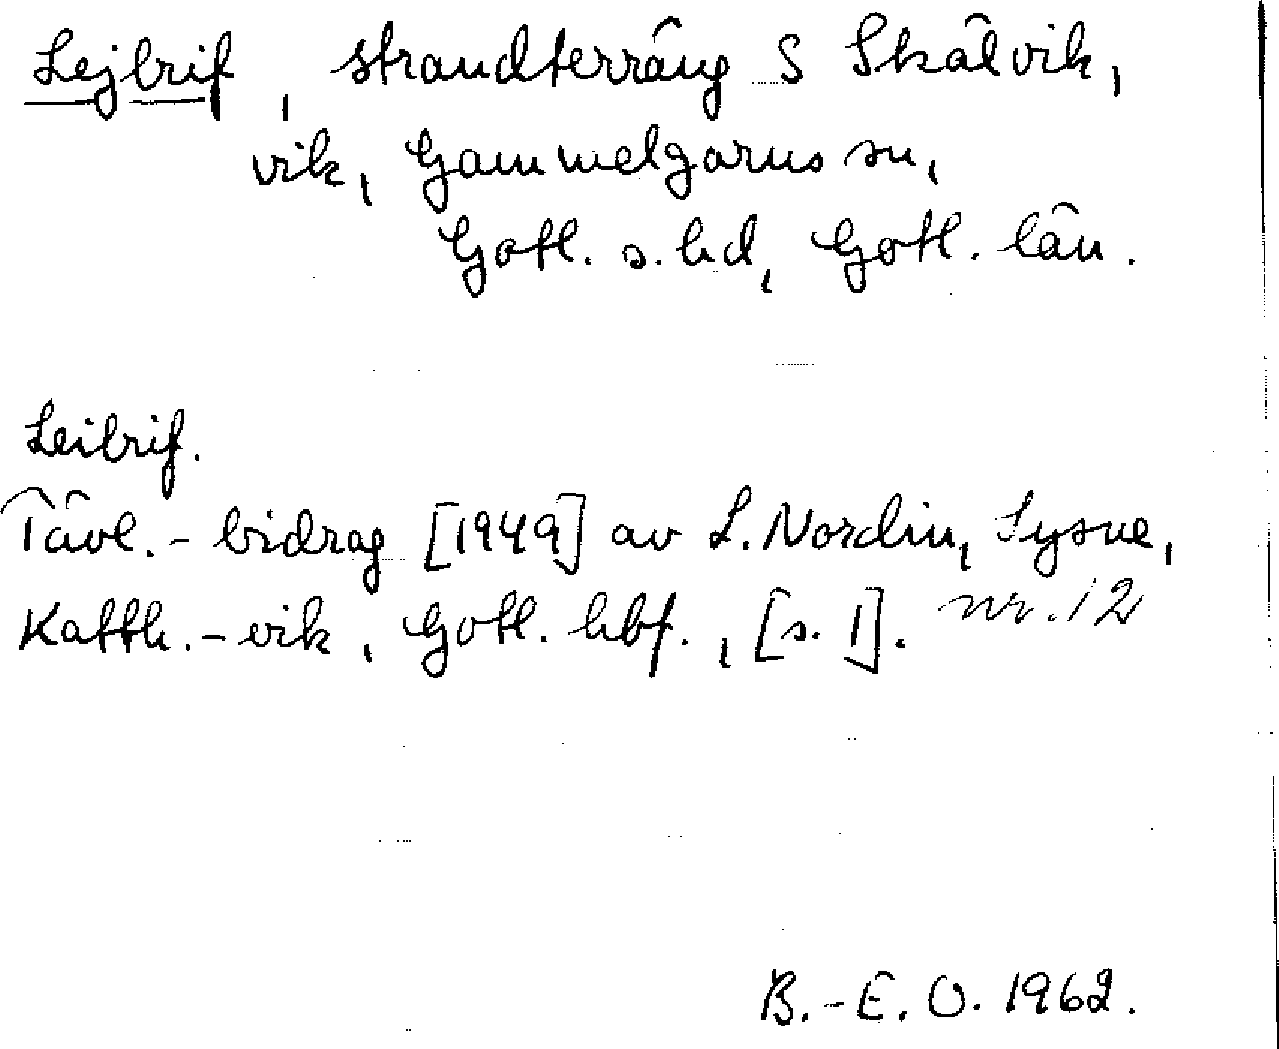 Lejbrif, strandterräng S Skälvik,
vik, Gammelgarns sn,
Gotl. s. hd, Gotl. län.
Leibrif.
Tävl.-bidrag [1949] av L. Nordin, Sysne,
Katth.-vik, Gotl. hbf., [s. 1]. nr. 12
B.-E. O. 1962.